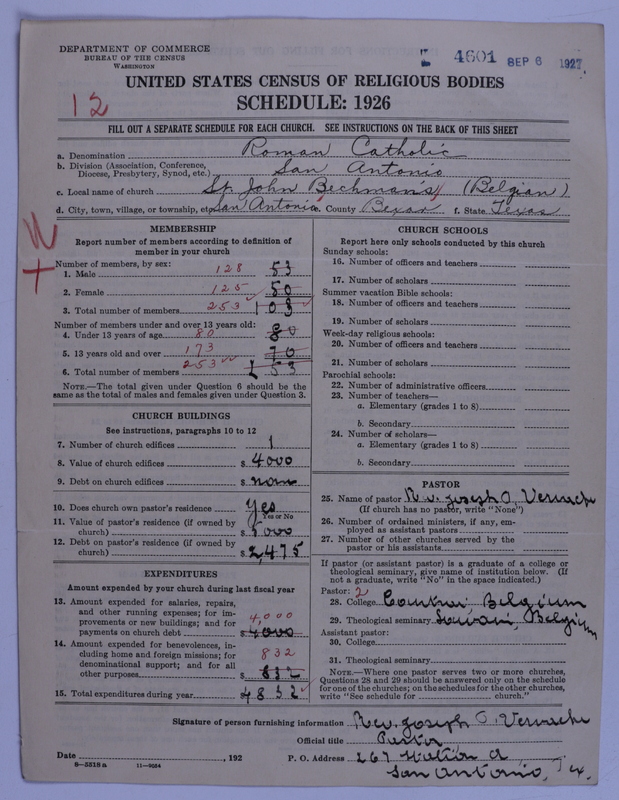 DEPARTMENT OF COMMERCE
BUREAU OF THE CENSUS
WASHINGTON
4601 SEP 6 1927
UNITED STATES CENSUS OF RELIGIOUS BODIES
SCHEDULE: 1926
12
FILL OUT A SEPARATE SCHEDULE FOR EACH CHURCH. SEE INSTRUCTIONS ON THE BACK OF THIS SHEET
a. Denomination Roman Catholic
b. Division (Association, Conference, Diocese, Presbytery, Synod, etc.) San Antonio
c. Local name of church St. John Bechmans (Belgian)
d. City, town, village, or township, etc. San Antonio e. County Bexar f. State Texas
MEMBERSHIP
Report number of members according to definition of
member in your church
Number of members, by sex:
1. Male 128 53
2. Female 125 50
3. Total number of members 253 103
Number of members under and over 13 years old:
4. Under 13 years of age 80 80
5. 13 years old and over 173 70
6. Total number of members 253 153
NOTE.—The total given under Question 6 should be
same as the total of males and females given under Question 3.
CHURCH BUILDINGS
See instructions, paragraphs 10 to 12
7. Number of church edifices 1
8. Value of church edifices $ 4000
9. Debt on church edifices $ none
10. Does church own pastor's residence Yes
Yes or No
11. Value of pastor's residence (if owned by
church) $ 5000
12. Debt on pastor's residence (if owned by
church) $ 2,475
EXPENDITURES
Amount expended by your church during last fiscal year
13. Amount expended for salaries, repairs,
and other running expenses; for im-
provements or new buildings; and for 4,000
payments on church debt $ 4000
14. Amount expended for benevolences, in-
cluding home and foreign missions; for 832
denominational support; and for all
other purposes $ 832
15. Total expenditures during year $ 4832
CHURCH SCHOOLS
Report here only schools conducted by this church
Sunday schools:
16. Number of officers and teachers
17. Number of scholars
Summer vacation Bible schools:
18. Number of officers and teachers
19. Number of scholars
Week-day religious schools:
20. Number of officers and teachers
21. Number of scholars
Parochial schools:
22. Number of administrative officers
23. Number of teachers—
a. Elementary (grades 1 to 8)
b. Secondary
24. Number of scholars—
a. Elementary (grades 1 to 8)
b. Secondary
PASTOR
25. Name of pastor Rev. Joseph
(If church has no pastor, write "None")
26. Number of ordained ministers, if any, em-
ployed as assistant pastors
27. Number of other churches served by the
pastor or his assistants
If pastor (or assistant pastor) is a graduate of a college or
theological seminary, give name of institution below. (If
not a graduate, write "No" in the space indicated.)
Pastor: 2
28. College Belgium
29. Theological seminary Belgium
Assistant pastor:
30. College
31. Theological seminary
NOTE.—Where one pastor serves two or more churches,
Questions 28 and 29 should be answered only on the schedule
for one of the churches; on the schedules for the other churches,
write "See schedule for church."
Signature of person furnishing information Rev. Joseph
Official title Pastor
Date , 192 P. O. Address 267
8—5518 a 11—9054 San Antonio, Tx.